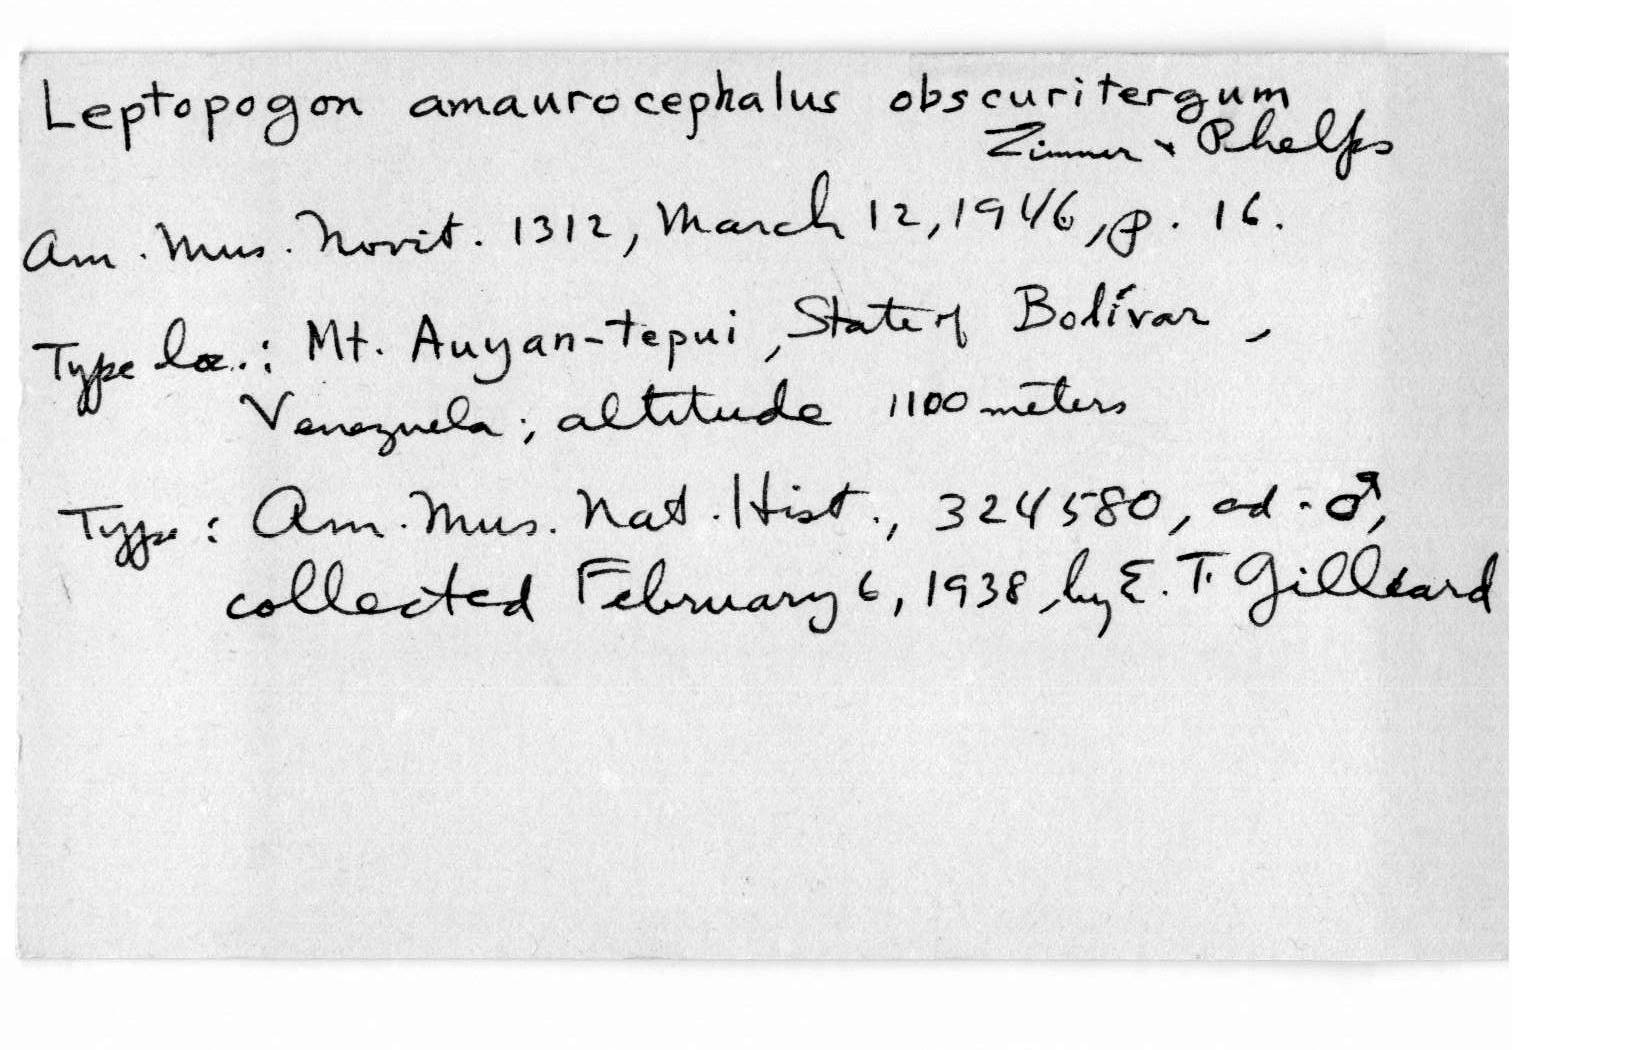 Leptopogon amaurocephalus obscuritergum
Zimmer & Phelps
Am. Mus. Novit. 1312, March 12, 1946, p. 16.
Type loc.: Mt. Auyan-tepui, State of Bolívar,
Venezuela; altitude 1100 meters
Type: Am. Mus. Nat. Hist., 324580, ad. ♂,
collected February 6, 1938, by E. T. Gilliard